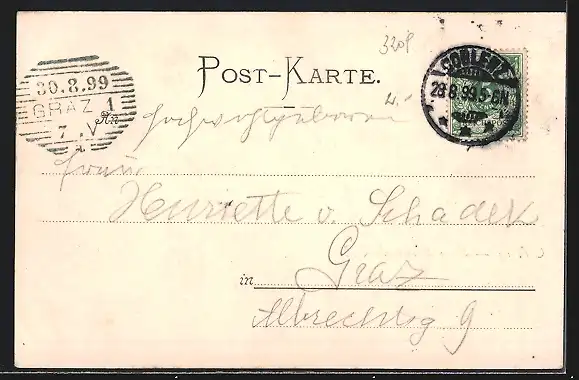 3209
POST-KARTE.
COBLENZ
28.8.99.5-6N
REICHSPOST
30.8.99
GRAZ 1
7.V
An Hochwohlgeboren
Frau
Henriette v. Schadek
in Graz
Albrechtsg 9